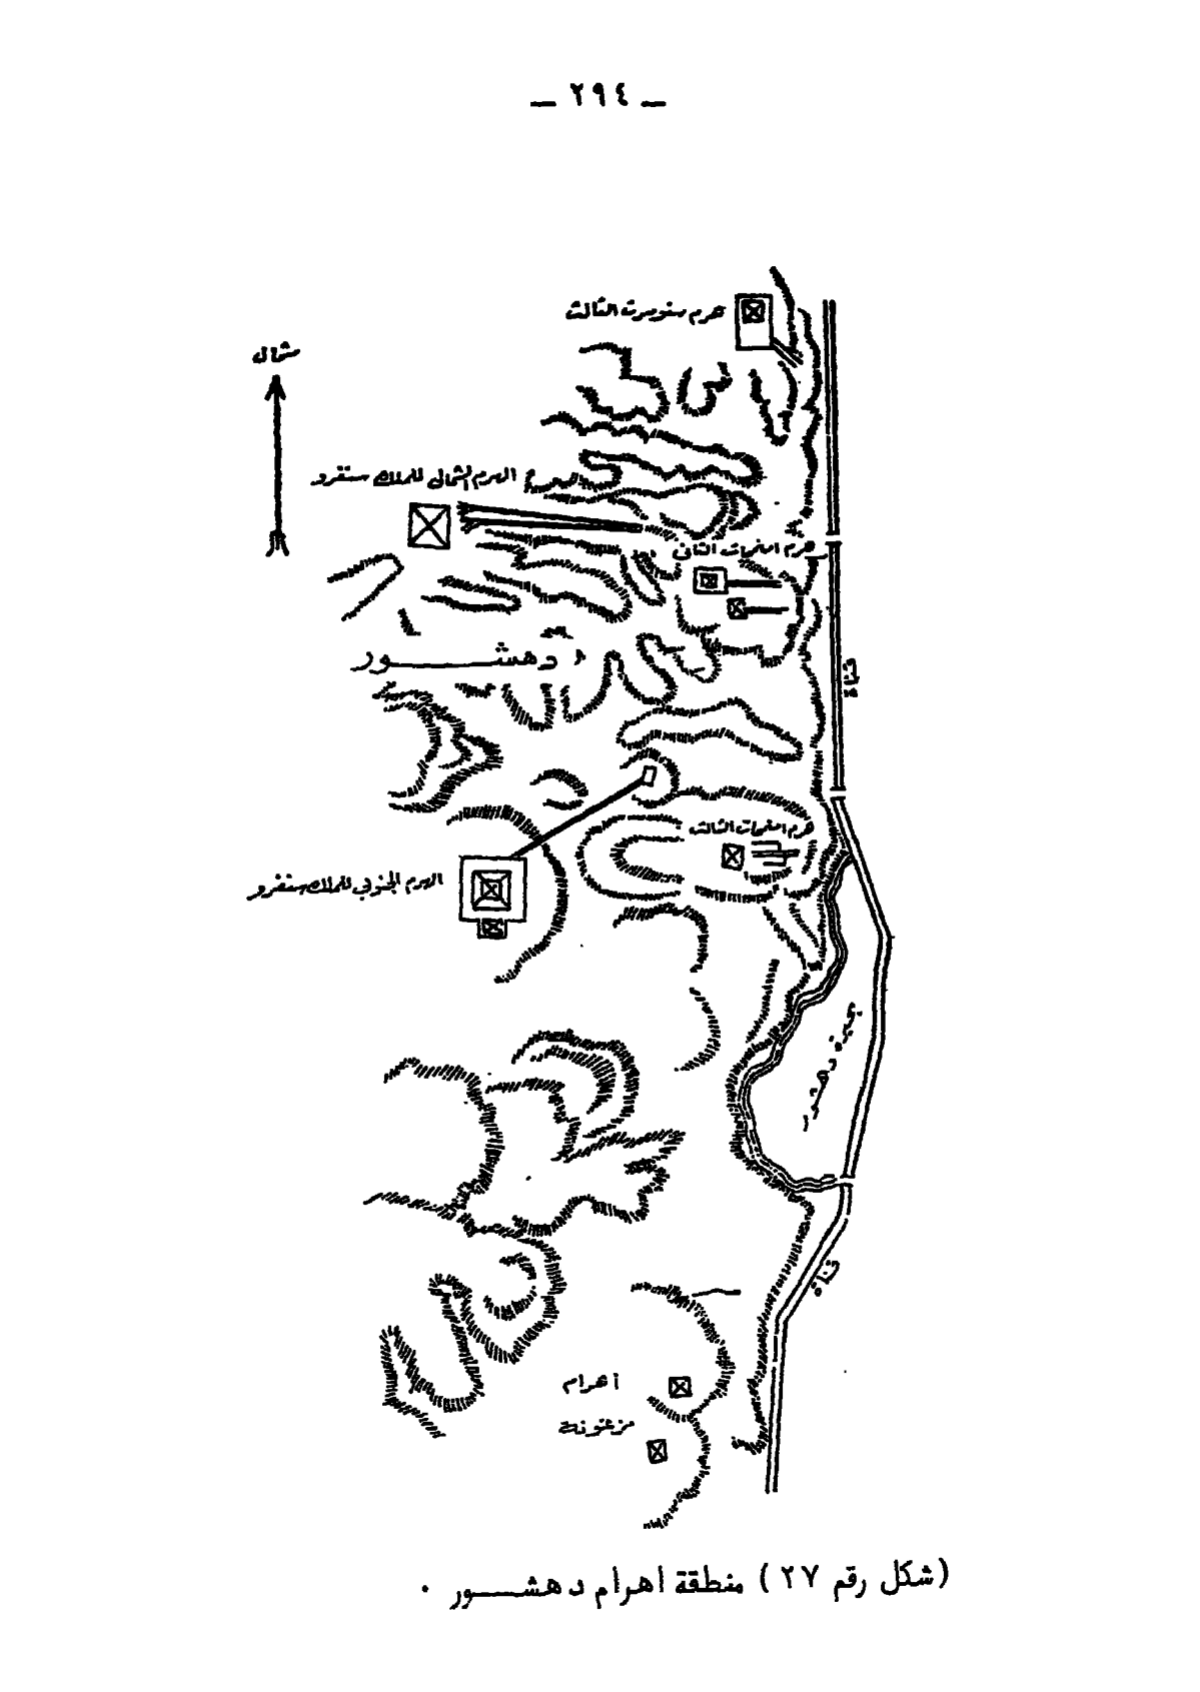 — ٢٩٤ —
هرم سنوسرت الثالث
شمال
الهرم الشمالى للملك سنفرو
هرم امنمحات الثانى
دهشــــور
قناة
هرم امنمحات الثالث
الهرم الجنوبي للملك سنفرو
بحيرة دهشور
قناة
أهرام
مزغونة
(شكل رقم ٢٧) منطقة اهرام دهشــــور .